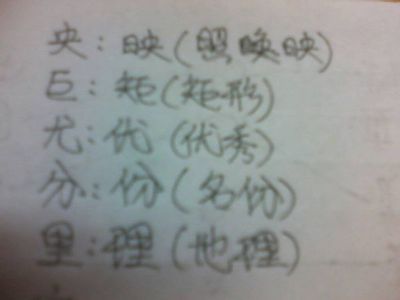 央：映(照唤映)
巨：矩(矩形)
尤：优(优秀)
分：份(名份)
里：理(地理)